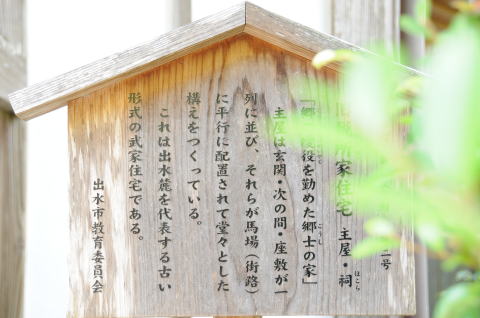 号
家住宅 主屋・祠
ほこら
「郷 役を勤めた郷士の家」
主屋は玄関・次の間・座敷が一
列に並び、それらが馬場（街路）
に平行に配置されて堂々とした
構えをつくっている。
これは出水麓を代表する古い
形式の武家住宅である。
出水市教育委員会